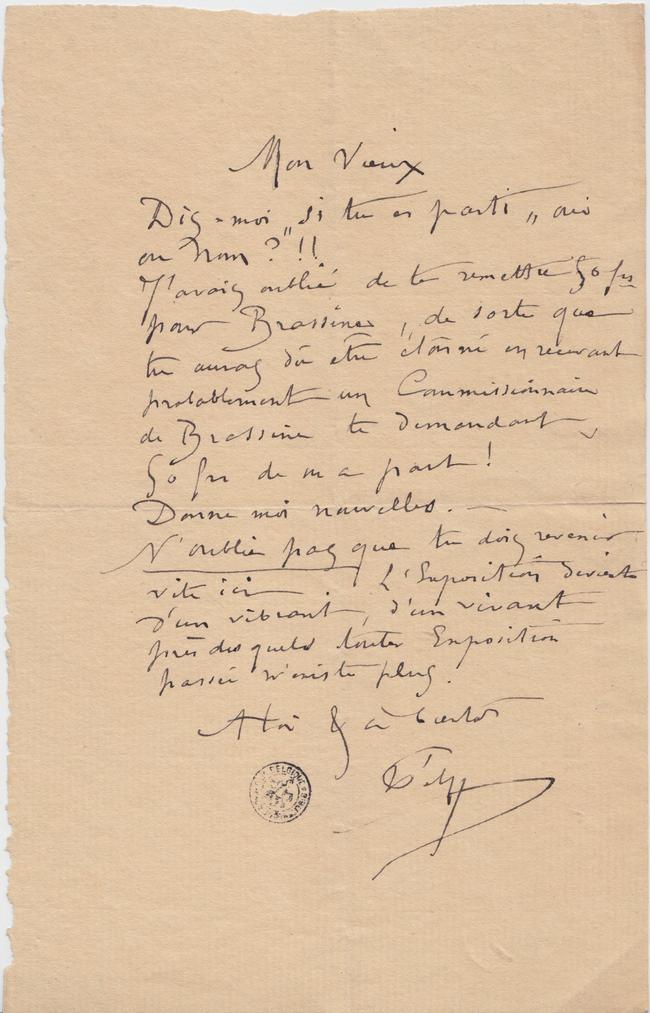 Mon Vieux
Dis-moi „si tu es parti „ oui
ou Non ?" !!
J'avais oublié de te remettre 50 frs
pour Brassine, de sorte que
tu auras dû être étonné en recevant
probablement un Commissionnaire
de Brassine te demandant
50 frs de ma part !
Donne moi nouvelles. —
N'oublie pas que tu dois revenir
vite ici L'Exposition devient
d'un vibrant, d'un vivant
près desquels toutes Exposition
passée n'existe plus.
A toi & à bientôt